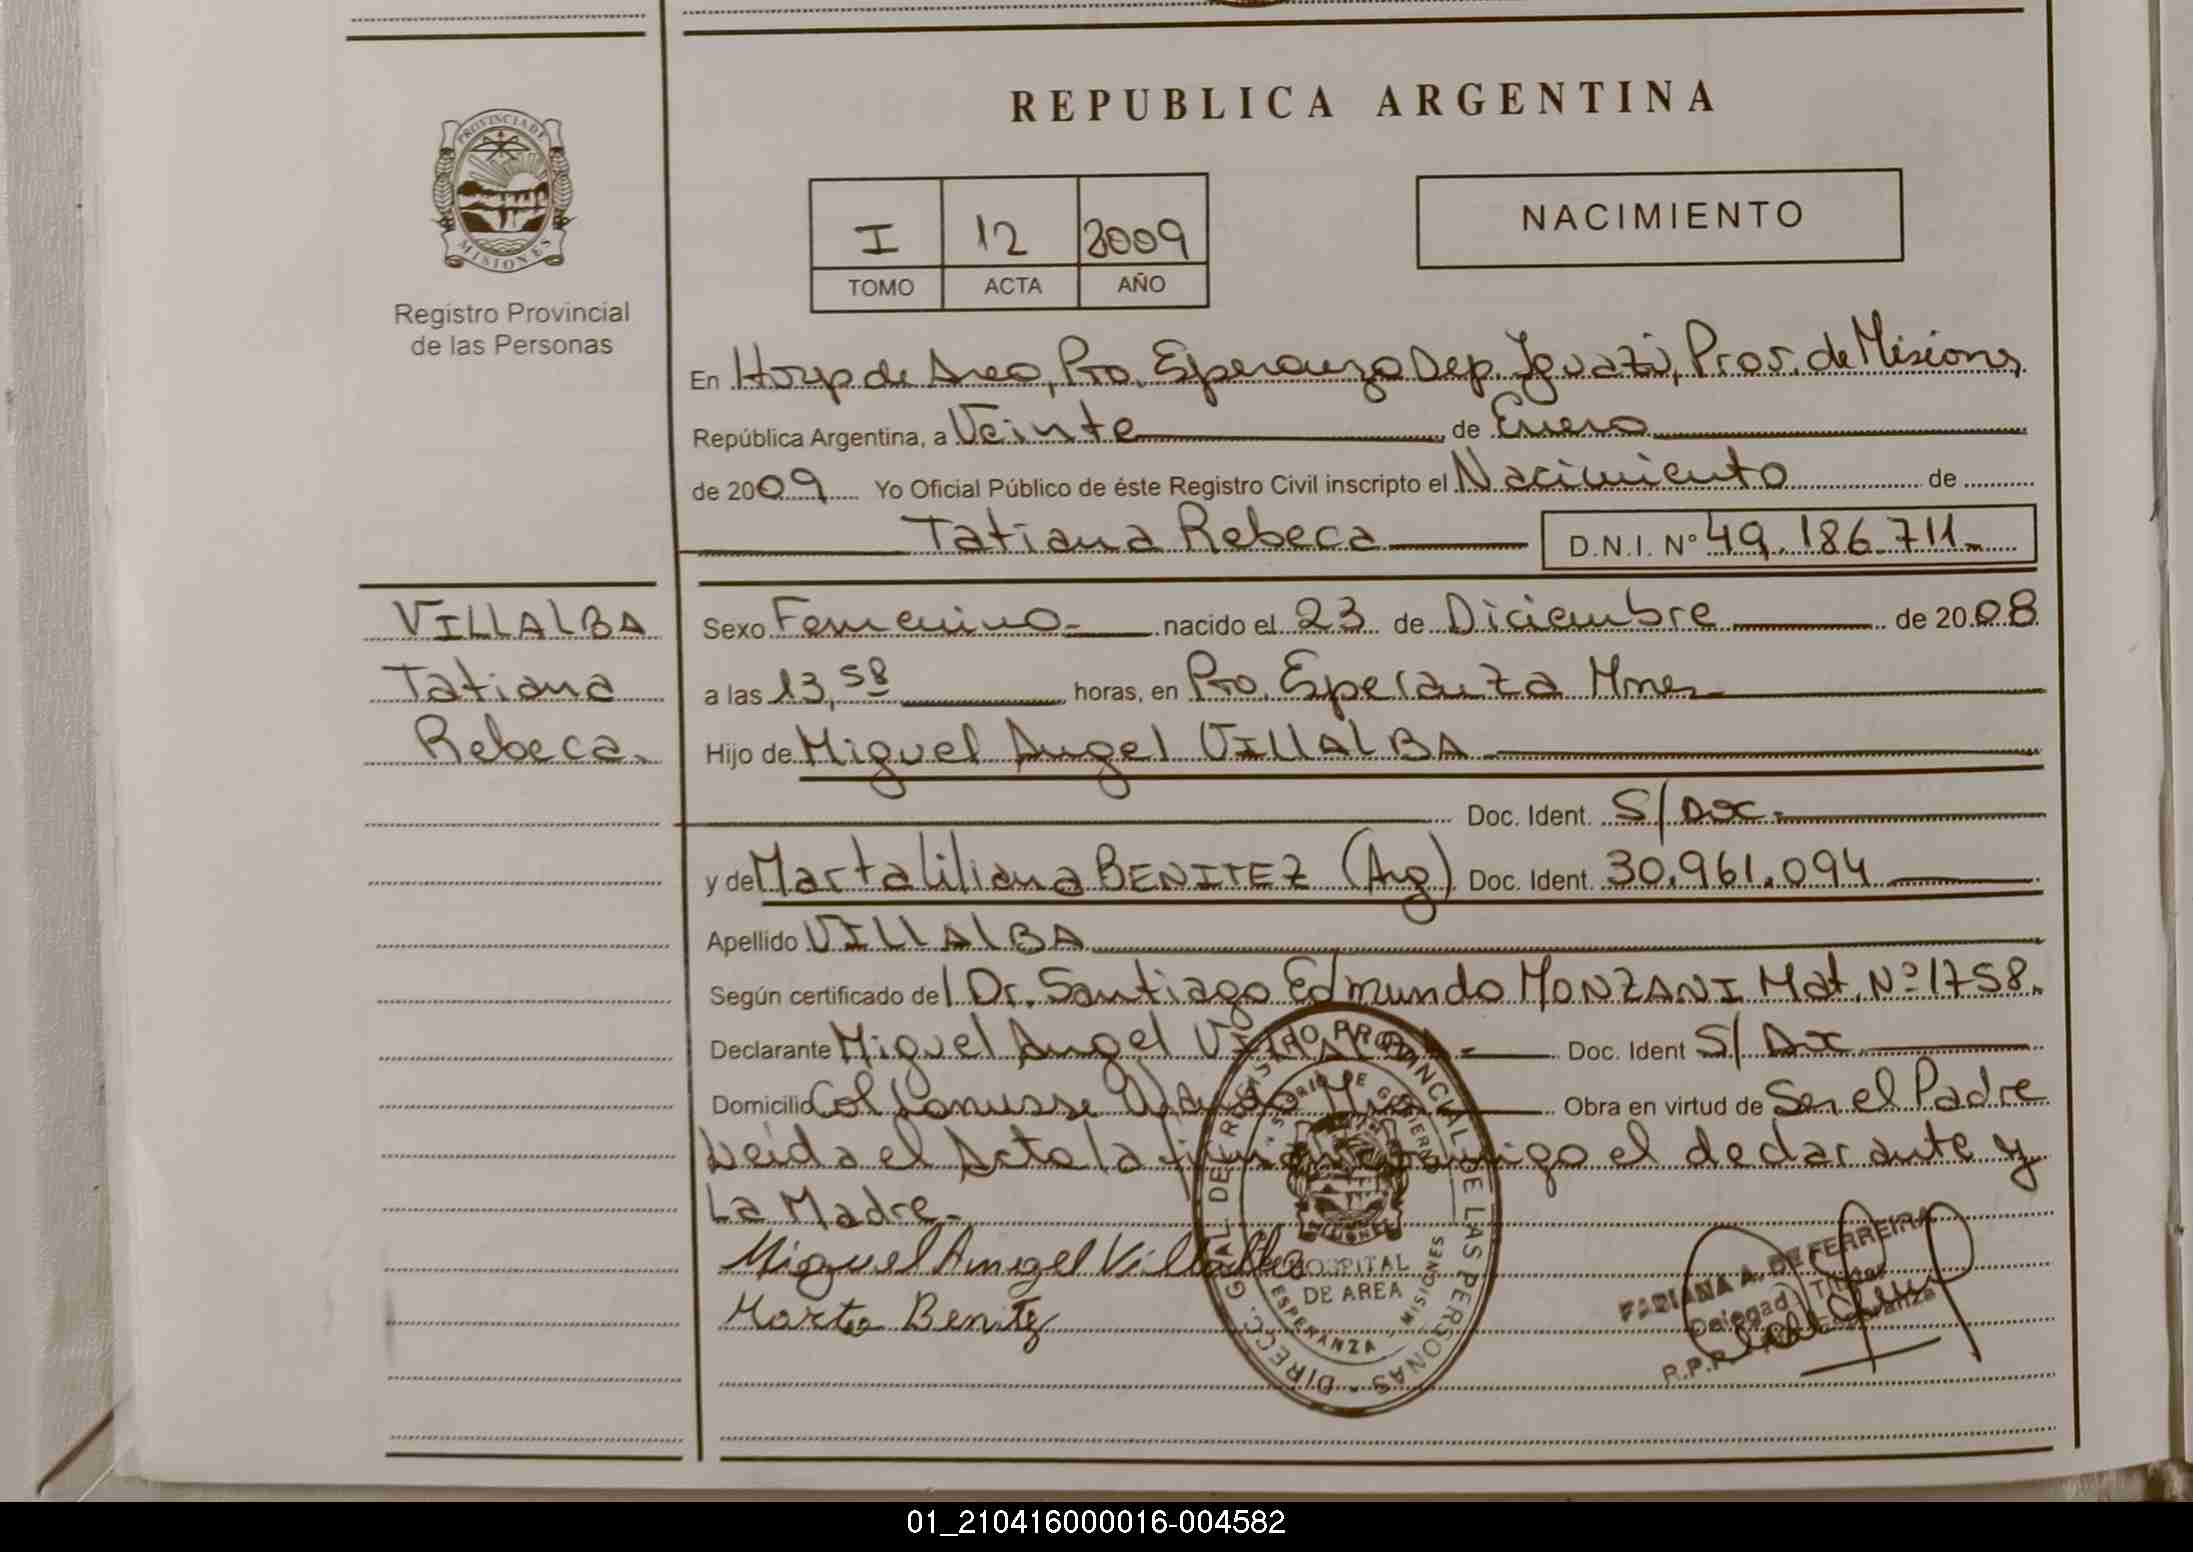 REPUBLICA ARGENTINA
PROVINCIA DE MISIONES
Registro Provincial
de las Personas
I 12 2009
TOMO ACTA AÑO
NACIMIENTO
En Hosp de Area, Pto. Esperanza Dep. Iguazú, Prov. de Misiones
República Argentina, a Veinte de Enero
de 2009 Yo Oficial Público de éste Registro Civil inscripto el Nacimiento de
Tatiana Rebeca D.N.I. N° 49.186.711
VILLALBA
Tatiana
Rebeca.
Sexo Femenino nacido el 23 de Diciembre de 2008
a las 13,58 horas, en Pto. Esperanza Mnes
Hijo de Miguel Angel VILLALBA
Doc. Ident. S/Doc.
y de Marta Liliana BENITEZ (Arg) Doc. Ident. 30.961.094
Apellido VILLALBA
Según certificado del Dr. Santiago Edmundo MONZANI Mat. Nº 1758.
Declarante Miguel Angel Doc. Ident S/Doc
Domicilio Col Lanusse Obra en virtud de Ser el Padre
Leída el Acta la el declarante y
La Madre.
Miguel Angel Villalba
Marta Benitez
DIRECC. GRAL DEL REGISTRO PROVINCIAL DE LAS PERSONAS
HOSPITAL
DE AREA
ESPERANZA MISIONES
FABIANA A. DE FERREIRA
R.P.P.
01_210416000016-004582